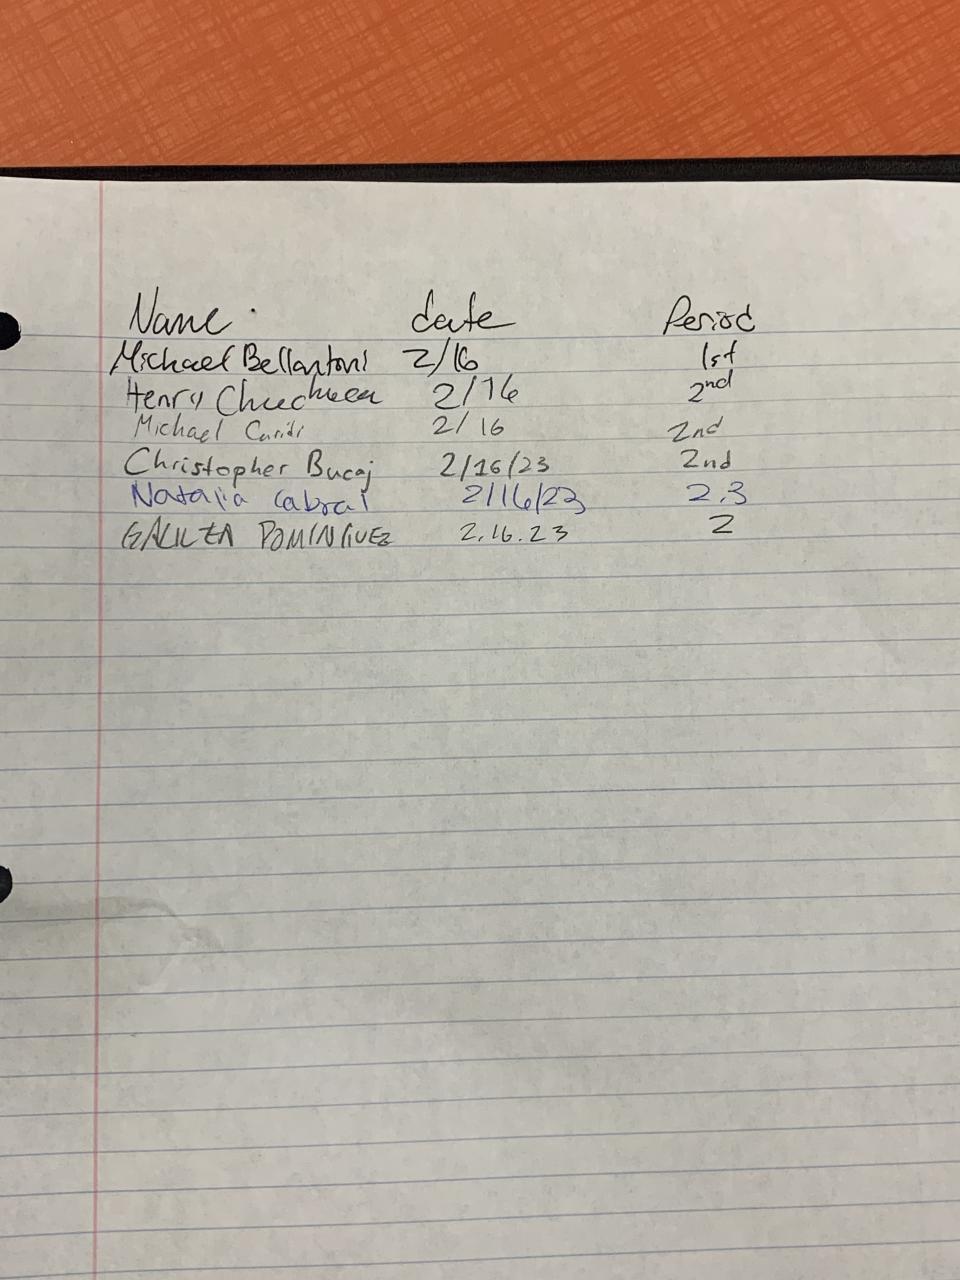 Name date Period
Michael Bellantoni 2/16 1st
Henry 2/16 2nd
Michael Caridi 2/16 2nd
Christopher Bucaj 2/16/23 2nd
Natalia Cabral 2/16/23 2,3
DOMINGUEZ 2.16.23 2